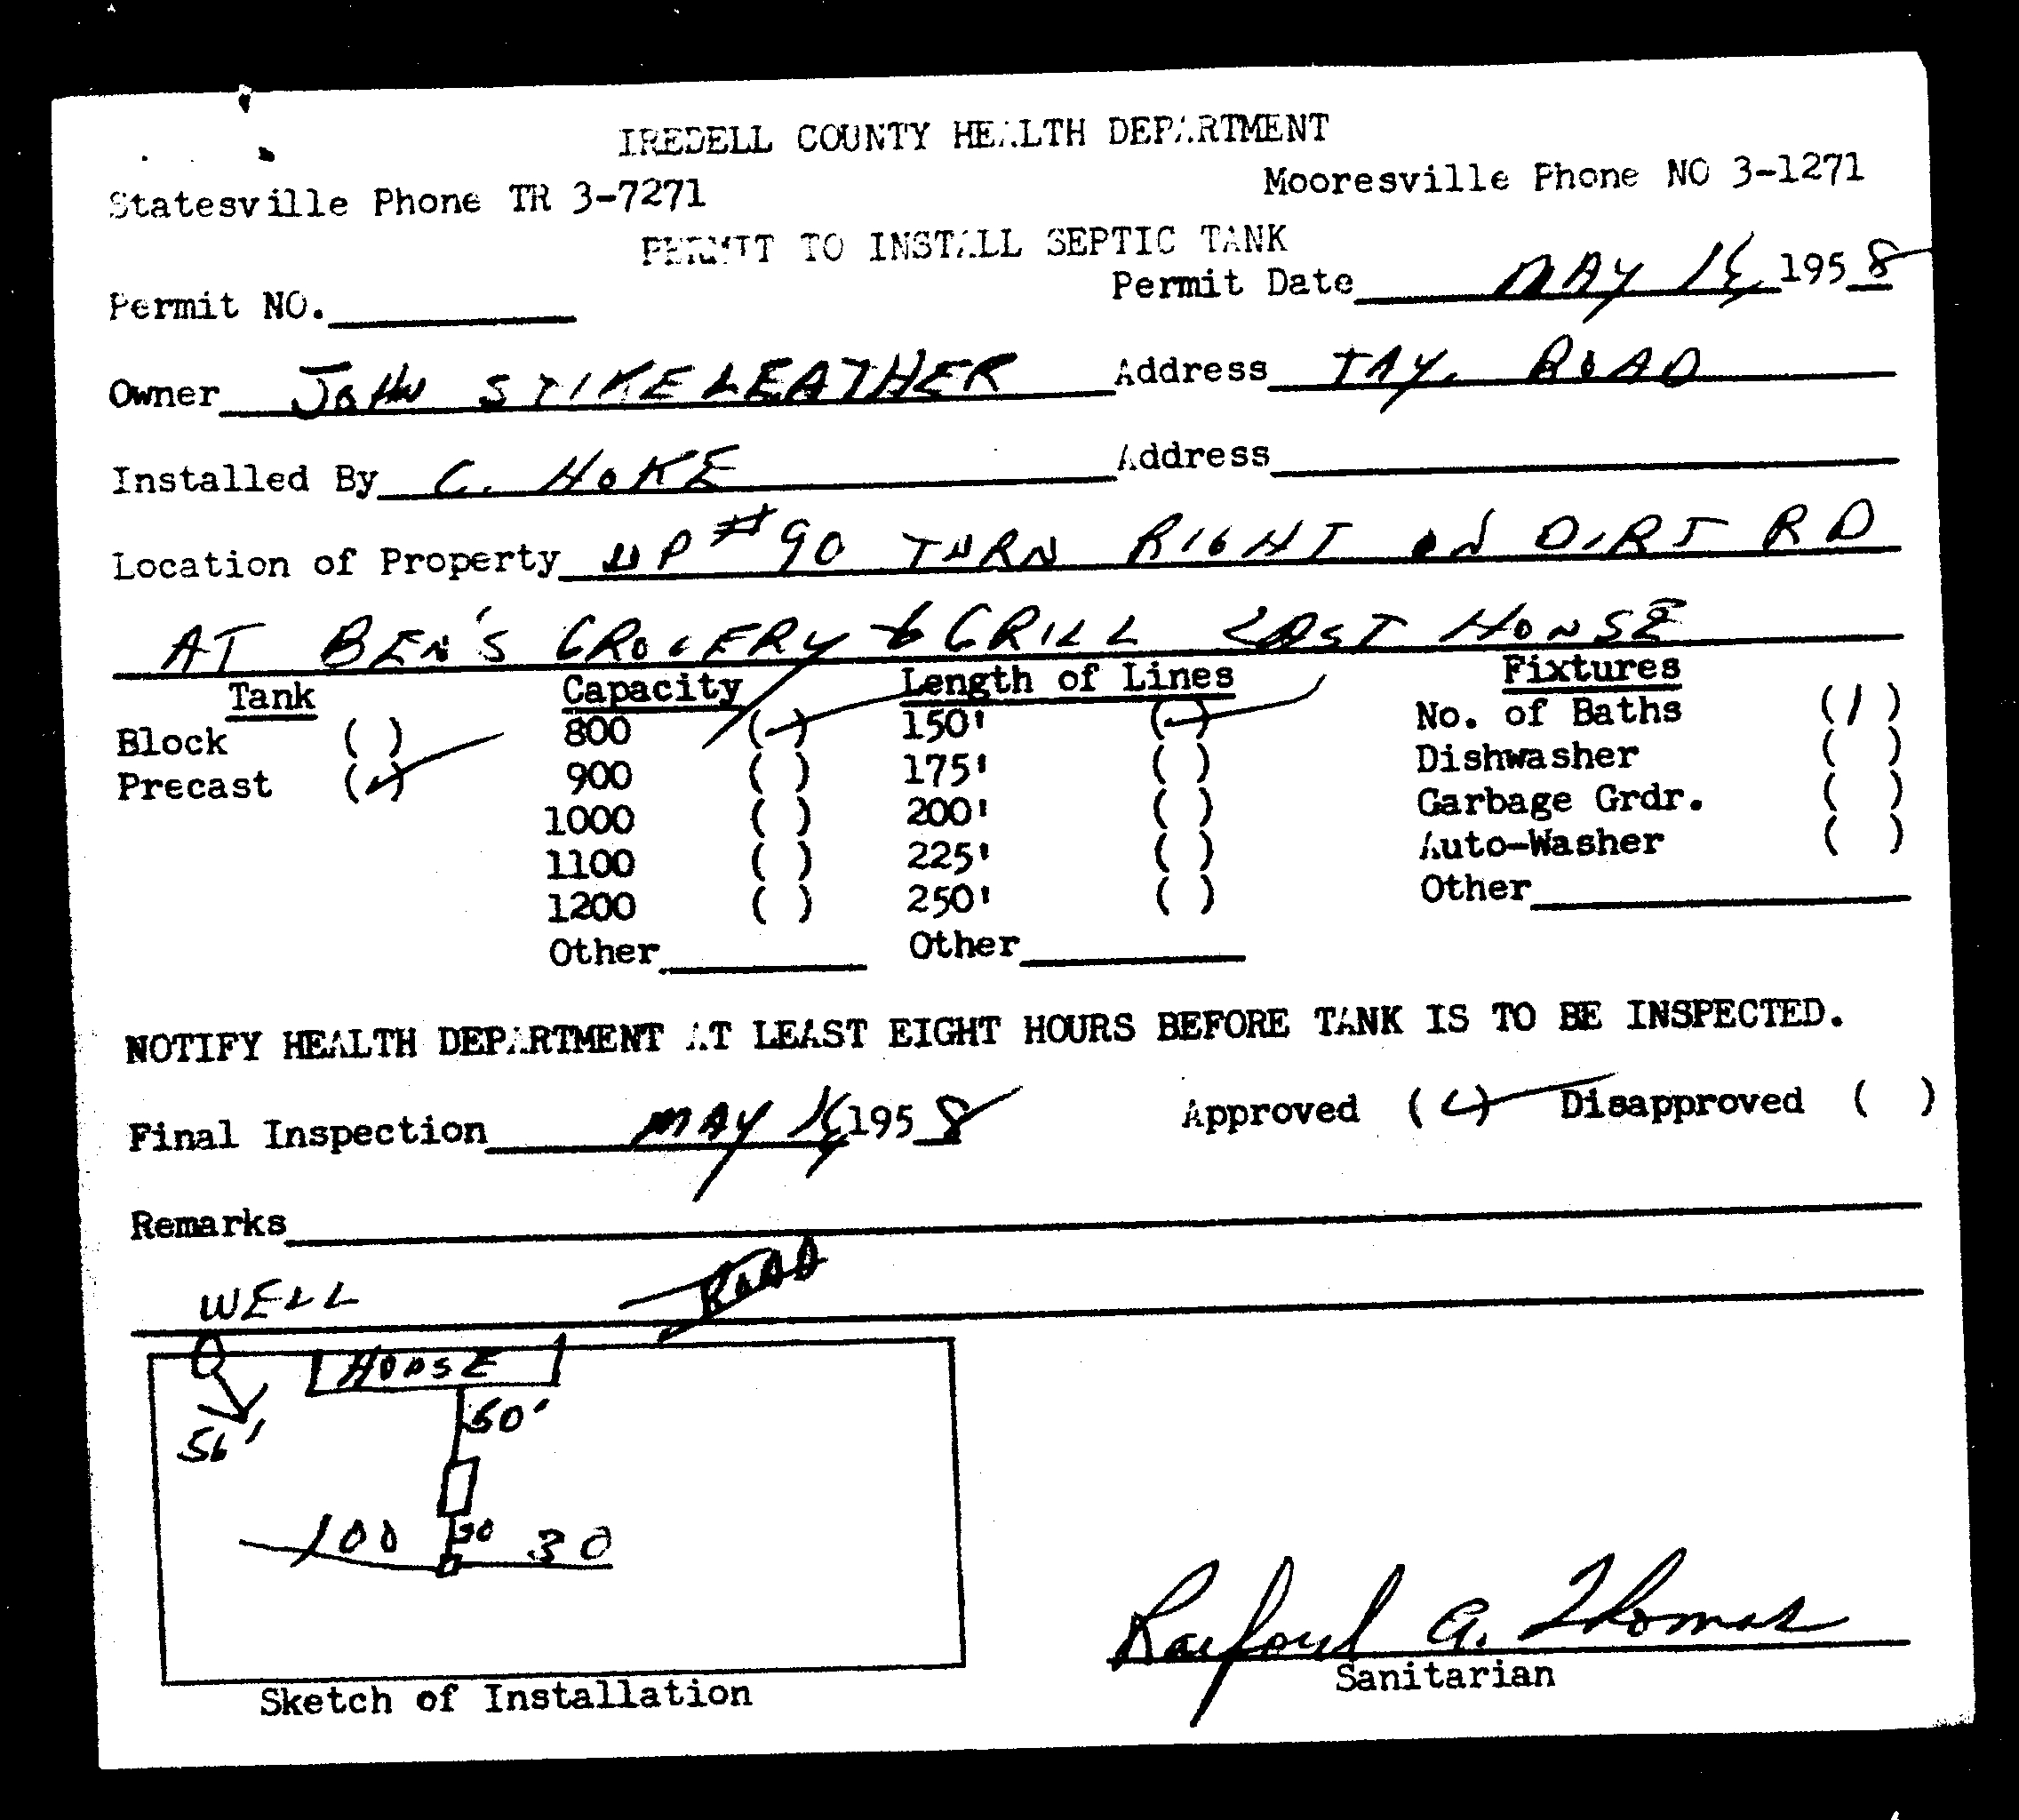 IREDELL COUNTY HEALTH DEPARTMENT
Statesville Phone TR 3-7271 Mooresville Phone NO 3-1271
PERMIT TO INSTALL SEPTIC TANK
Permit NO. Permit Date MAY 1958
Owner JOHN STIKELEATHER Address TAY. ROAD
Installed By C. HOKE Address
Location of Property UP #90 TURN RIGHT ON DIRT RD
AT BEN'S GROCERY & GRILL LAST HOUSE
Tank Capacity Length of Lines Fixtures
Block ( ) 800 (✓) 150' (✓) No. of Baths (1)
Precast (✓) 900 ( ) 175' ( ) Dishwasher ( )
1000 ( ) 200' ( ) Garbage Grdr. ( )
1100 ( ) 225' ( ) Auto-Washer ( )
1200 ( ) 250' ( ) Other
Other Other
NOTIFY HEALTH DEPARTMENT AT LEAST EIGHT HOURS BEFORE TANK IS TO BE INSPECTED.
Final Inspection MAY 1958 Approved (✓) Disapproved ( )
Remarks
WELL ROAD
HOUSE
50'
56'
100 30
Raiford A. Thomas
Sanitarian
Sketch of Installation